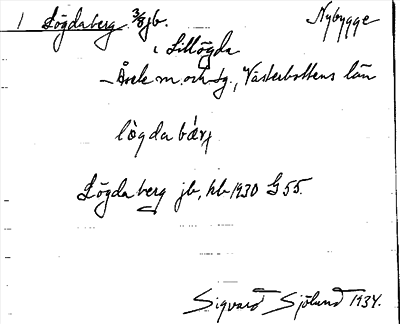 1 Lögdaberg 3/8 jb. Nybygge
i Lillögda
Åsele sn. och tg., Västerbottens län
lògda bærj
Lögdaberg jb, hb 1930 G 55.
Sigvard Sjölund 1934.